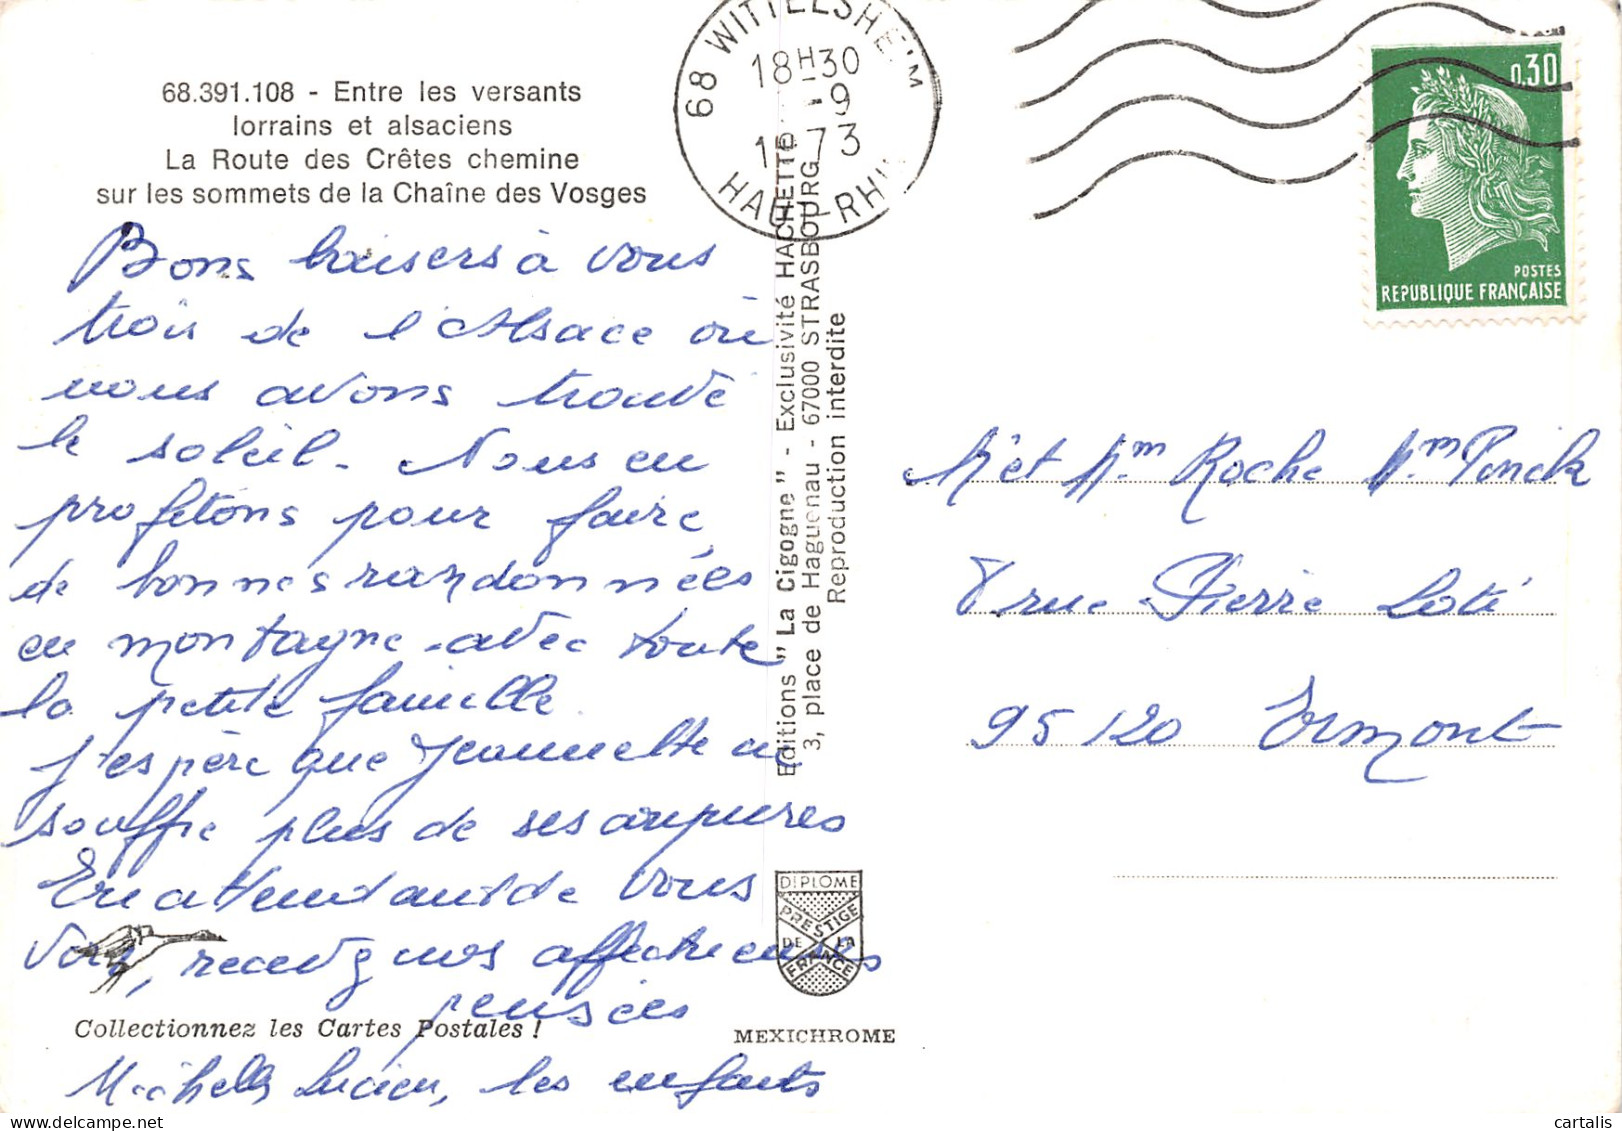 68.391.108 - Entre les versants
lorrains et alsaciens
La Route des Crêtes chemine
sur les sommets de la Chaîne des Vosges
Bons baisers à vous
trois de l'Alsace où
nous avons trouvé
le soleil. Nous en
profitons pour faire
de bonnes randonnées
en montagne avec toute
la petite famille.
J'espère que Jeannette ne
souffre plus de ses
En attendant de vous
voir, recevez nos affectueuses
pensées
Michelle Lucien, les enfants
Collectionnez les Cartes Postales !
MEXICHROME
DIPLOME
PRESTIGE
DE LA
FRANCE
Editions "La Cigogne" - Exclusivité HACHETTE
3, place de Haguenau - 67000 STRASBOURG
Reproduction interdite
68 WITTELSHEIM
18H30
-9
1973
HAUT-RHIN
0,30
POSTES
REPUBLIQUE FRANÇAISE
Mr et Mm Roche Mm
8 rue Pierre Loti
95120 Ermont
cartalis
delcampe.net